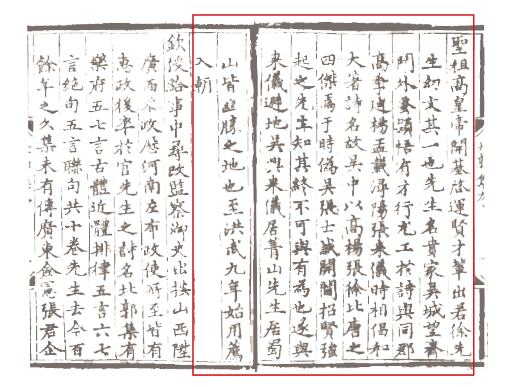 聖祖高皇帝開基啓運賢才輩出若徐先
生幼文其一也先生名賁家吳城望齊
門外蚤頴悟有才行尤工於詩與同郡
高季迪楊孟載潯陽張來儀時相倡和
大著詩名故吳中以高楊張徐比唐之
四傑焉于時偽吳張士誠開閫招賢強
起之先生知其終不可與有為也遂與
來儀避地吳興來儀居菁山先生居蜀
山皆幽勝之地也至洪武九年始用薦
入朝
欽授給事中尋改監察御史出按山西陞
廣西右政歷河南左布政使所至皆有
惠政後卒於官先生之詩名北郭集有
樂府五七言古體近體排律五言六七
言絕句五言聯句共十卷先生去今百
餘年之久集未有傳廣東僉憲張君企